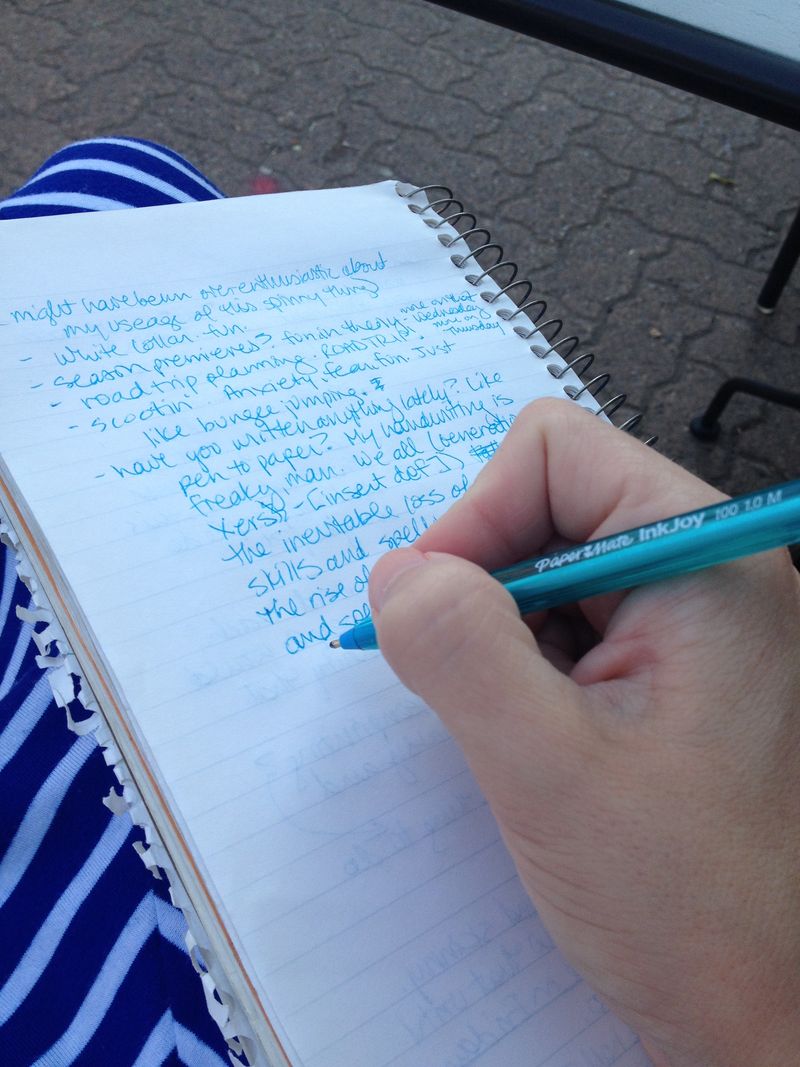 - might have been overenthusiastic about
my useage of this spinny thing
- white collar. fun.
- season premieres? fun in theory.
more on that
Wednesday
more on
Thursday
- road trip planning. ROADTRIP!
- scootin'. Anxiety. fear. fun. Just
like bungee jumping.
- have you written anything lately? Like
pen to paper? My handwriting is
freaky, man. We all (generation
Xers? - [insert def])
the inevitable loss of
skills and spell
the rise of
and spe
PaperMate InkJoy 100 1.0 M